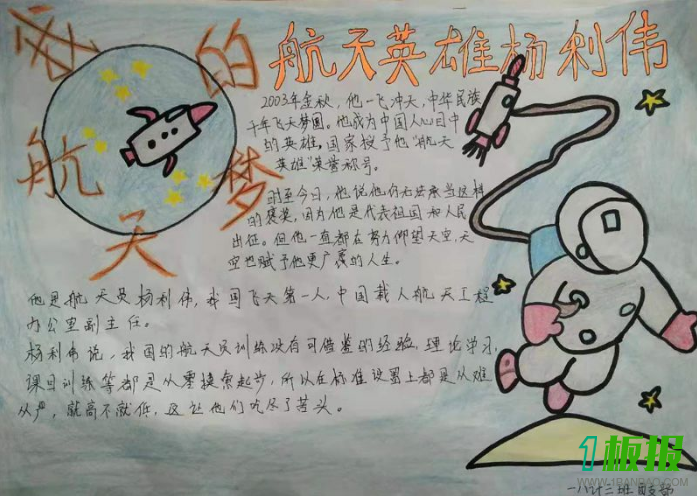 我的航天梦
航天英雄杨利伟
2003年金秋，他一飞冲天，中华民族
千年飞天梦圆。他成为中国人心目中
的英雄，国家授予他“航天
英雄”荣誉称号。
时至今日，他说他仍无法承当这样
的褒奖，因为他是代表祖国和人民
出征。但他一直都在努力仰望天空，天
空也赋予他更广袤的人生。
他是航天员杨利伟，我国飞天第一人，中国载人航天工程
办公室副主任。
杨利伟说，我国的航天员训练没有可借鉴的经验，理论学习，
课目训练等都是从零摸索起步，所以在标准设置上都是从难
从严，就高不就低，这让他们吃尽了苦头。
1板报
WWW.1BANBAO.COM
一八计三班